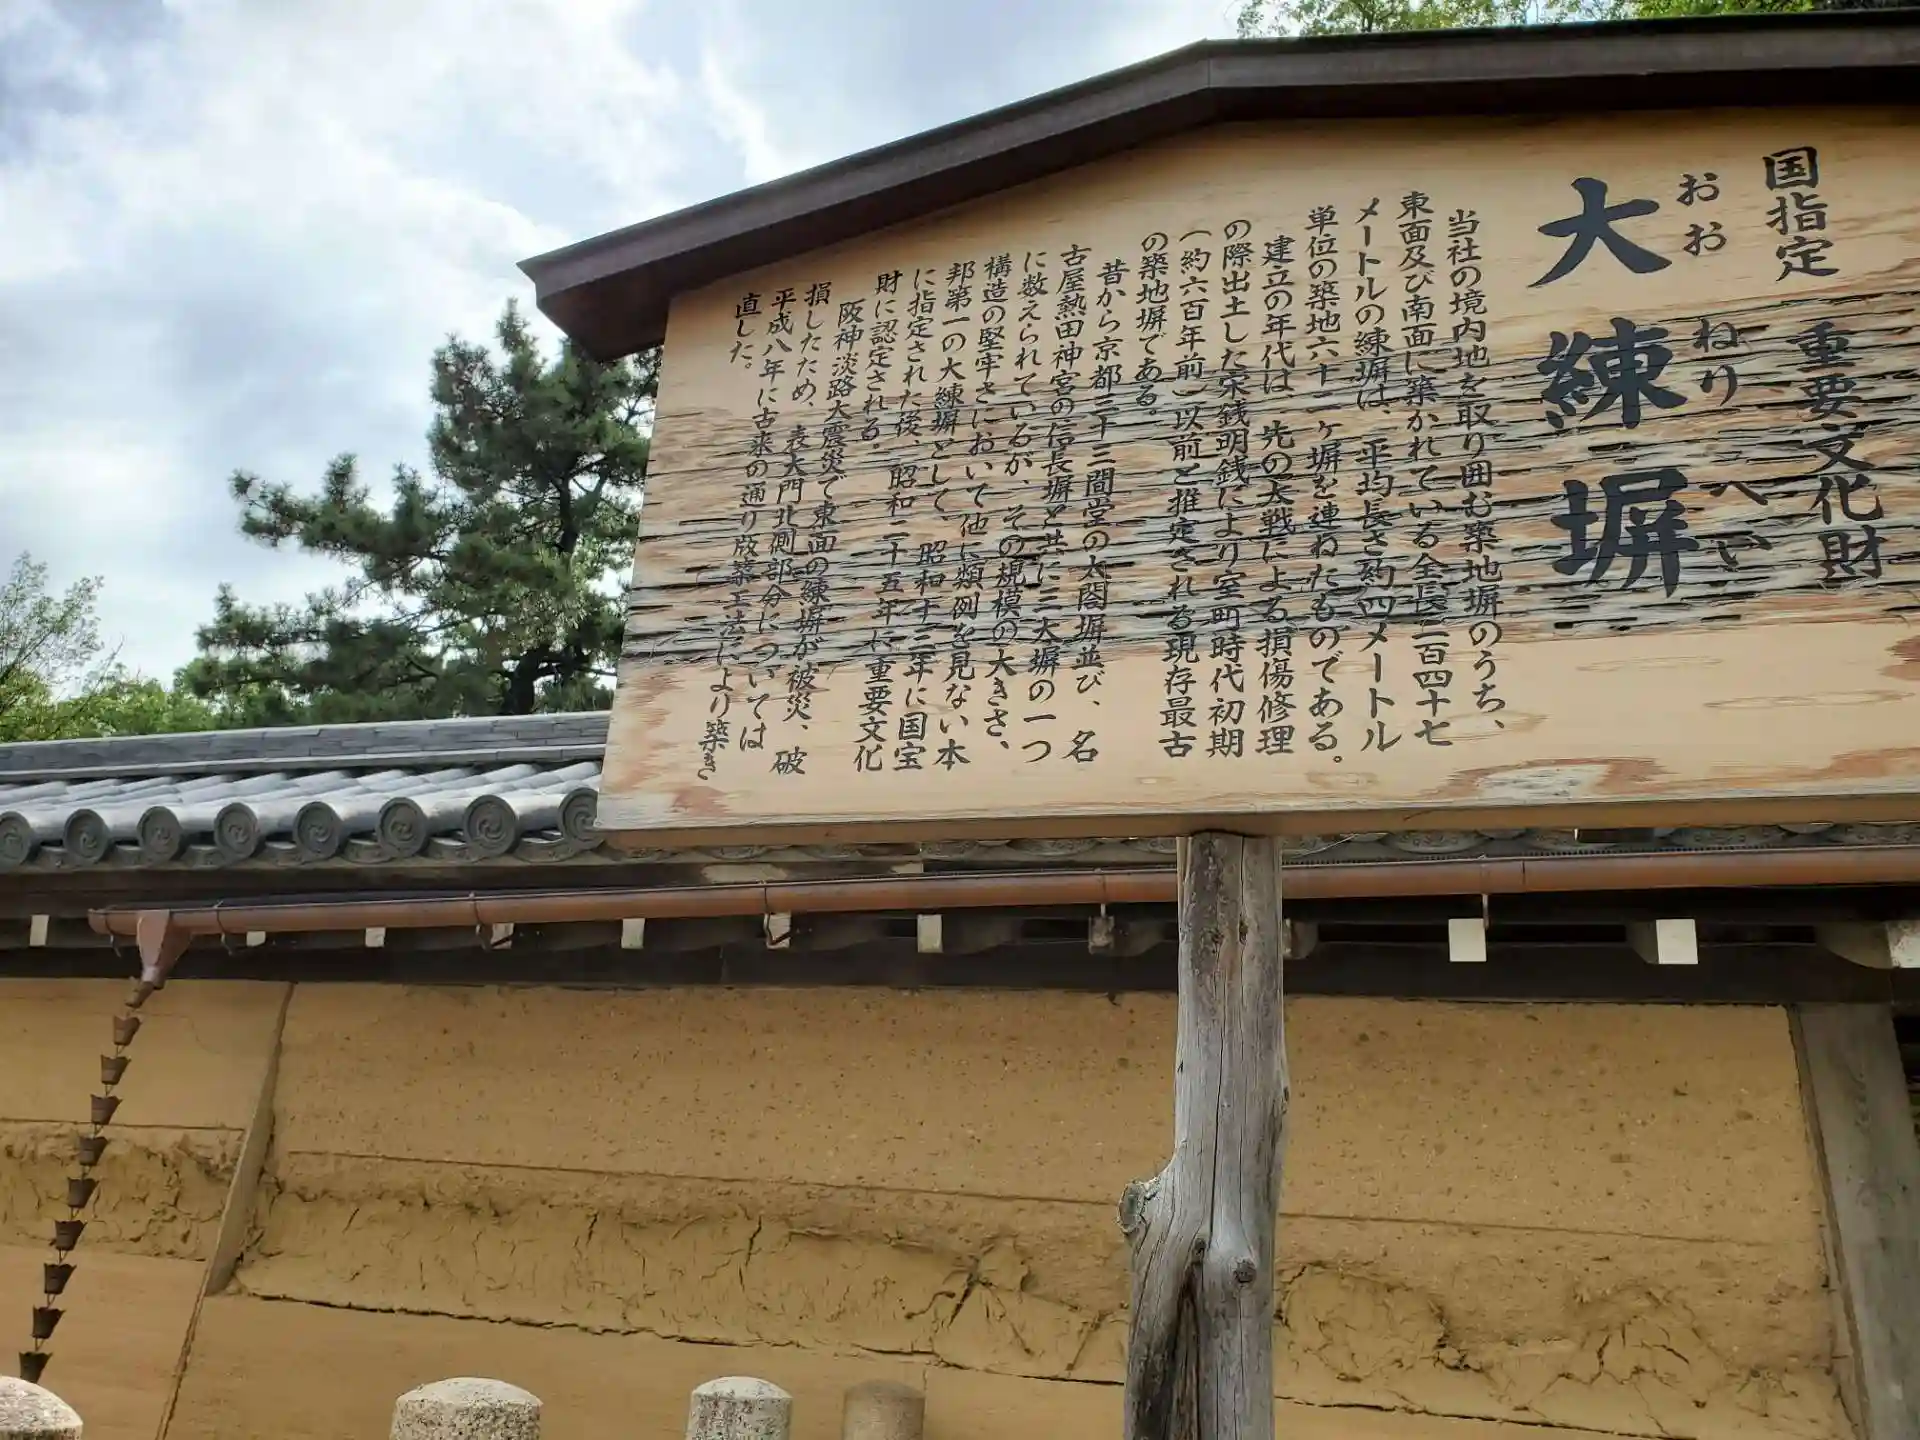 国指定 重要文化財
おお ねり へい
大練塀
当社の境内地を取り囲む築地塀のうち、
東面及び南面に築かれている全長二百四十七
メートルの練塀は、平均長さ約四メートル
単位の築地六十一ヶ塀を連ねたものである。
建立の年代は、先の大戦による損傷修理
の際出土した宋銭明銭により室町時代初期
（約六百年前）以前と推定される現存最古
の築地塀である。
昔から京都三十三間堂の太閤塀並び、名
古屋熱田神宮の信長塀と共に三大塀の一つ
に数えられているが、その規模の大きさ、
構造の堅牢さにおいて他に類例を見ない本
邦第一の大練塀として、昭和十三年に国宝
に指定された後、昭和二十五年に重要文化
財に認定される。
阪神淡路大震災で東面の練塀が被災、破
損したため、表大門北側部分については
平成八年に古来の通り版築工法により築き
直した。